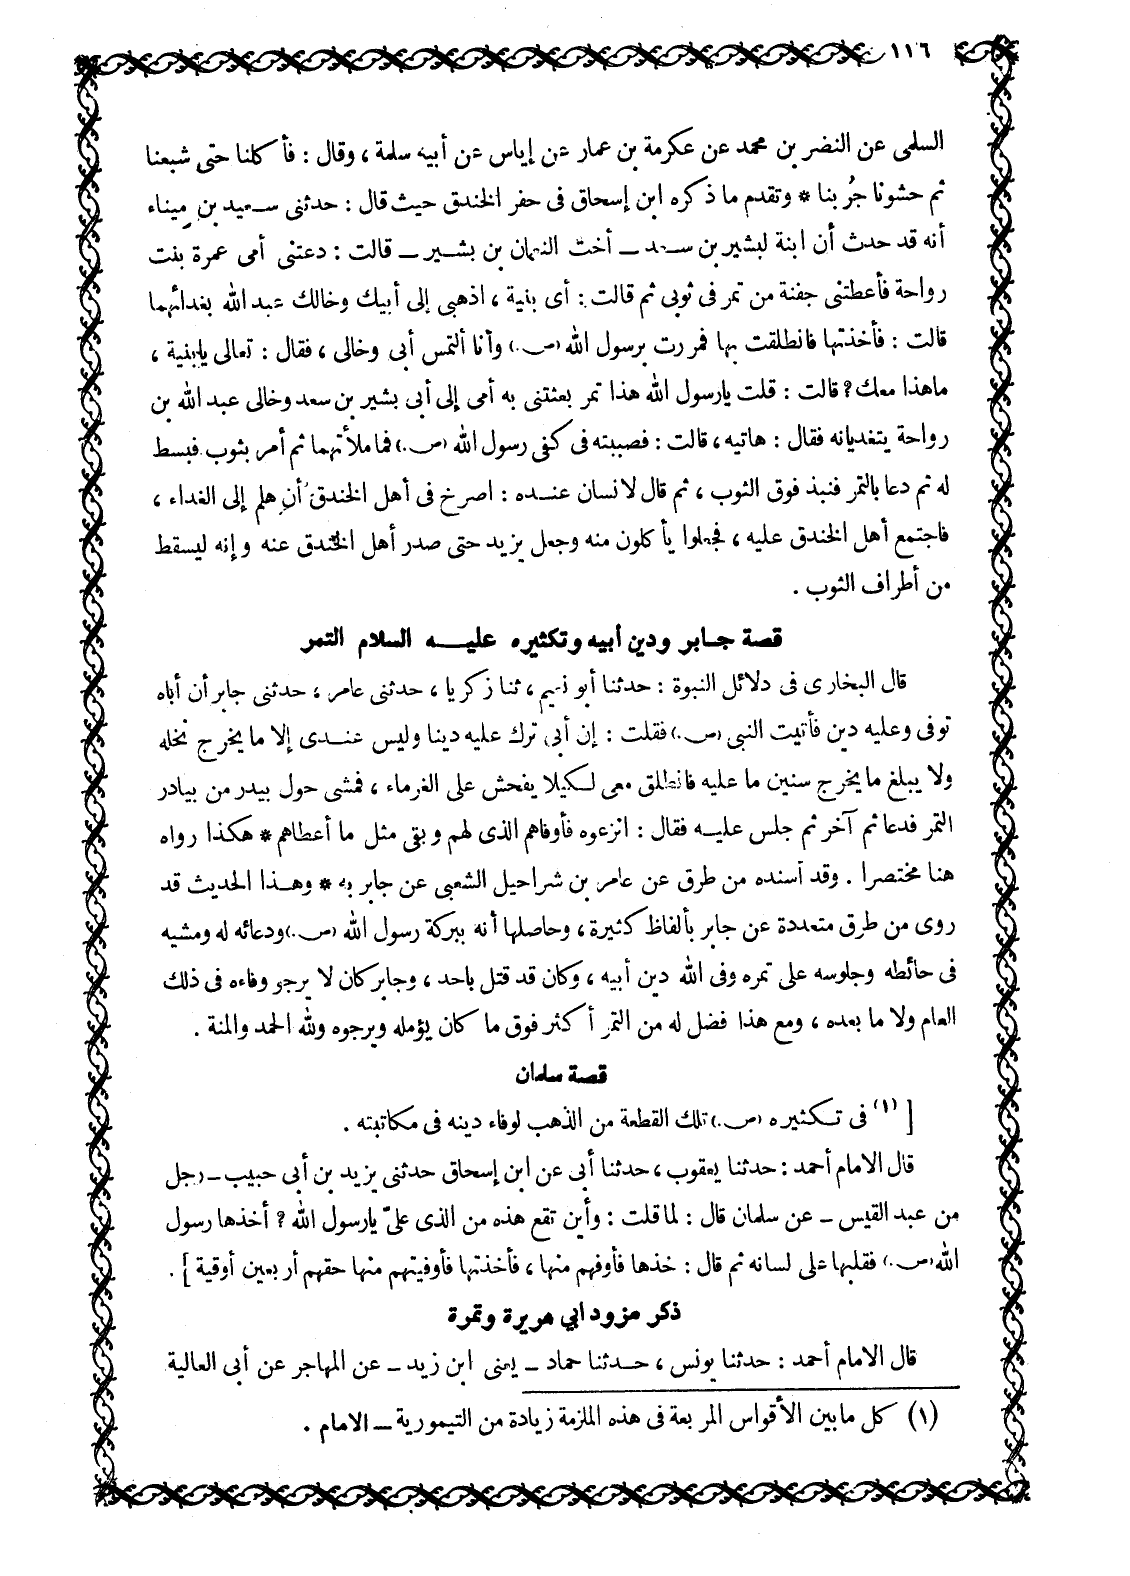 ١١٦
السلمى عن النضر بن محمد عن عكرمة بن عمار عن إياس عن أبيه سلمة ، وقال : فأكلنا حتى شبعنا
ثم حشونا جُربنا * وتقدم ما ذكره ابن إسحاق فى حفر الخندق حيث قال : حدثنى سعيد بن ميناء
أنه قد حدث أن ابنة لبشير بن سعد ــ أخت النعمان بن بشير ــ قالت : دعتنى أمى عمرة بنت
رواحة فأعطتنى جفنة من تمر فى ثوبى ثم قالت : أى بنية ، اذهبى إلى أبيك وخالك عبد الله بغدائهما
قالت : فأخذتها فانطلقت بها فمررت برسول الله (ص.) وأنا ألتمس أبى وخالى ، فقال : تعالى يابنية ،
ماهذا معك ؟ قالت : قلت يارسول الله هذا تمر بعثتنى به أمى إلى أبى بشير بن سعد وخالى عبد الله بن
رواحة يتغديانه فقال : هاتيه ، قالت : فصببته فى كفى رسول الله (ص.) فما ملأتهما ثم أمر بثوب فبسط
له ثم دعا بالتمر فنبذ فوق الثوب ، ثم قال لانسان عنده : اصرخ فى أهل الخندق أن هلم إلى الغداء ،
فاجتمع أهل الخندق عليه ، فجعلوا يأكلون منه وجعل يزيد حتى صدر أهل الخندق عنه وإنه ليسقط
من أطراف الثوب .
قصة جابر ودين أبيه وتكثيره عليه السلام التمر
قال البخارى فى دلائل النبوة : حدثنا أبو نعيم ، ثنا زكريا ، حدثنى عامر ، حدثنى جابر أن أباه
توفى وعليه دين فأتيت النبى (ص.) فقلت : إن أبى ترك عليه دينا وليس عندى إلا ما يخرج نخله
ولا يبلغ ما يخرج سنين ما عليه فانطلق معى لكيلا يفحش على الغرماء ، فمشى حول بيدر من بيادر
التمر فدعا ثم آخر ثم جلس عليه فقال : انزعوه فأوفاهم الذى لهم وبقى مثل ما أعطاهم * هكذا رواه
هنا مختصرا . وقد أسنده من طرق عن عامر بن شراحيل الشعبى عن جابر به * وهذا الحديث قد
روى من طرق متعددة عن جابر بألفاظ كثيرة ، وحاصلها أنه ببركة رسول الله (ص.) ودعائه له ومشيه
فى حائطه وجلوسه على تمره وفى الله دين أبيه ، وكان قد قتل بأحد ، وجابر كان لا يرجو وفاءه فى ذلك
العام ولا ما بعده ، ومع هذا فضل له من التمر أكثر فوق ما كان يؤمله ويرجوه ولله الحمد والمنة .
قصة سلمان
[ (١) فى تكثيره (ص.) تلك القطعة من الذهب لوفاء دينه فى مكاتبته .
قال الامام أحمد : حدثنا يعقوب ، حدثنا أبى عن ابن إسحاق حدثنى يزيد بن أبى حبيب ــ رجل
من عبد القيس ــ عن سلمان قال : لما قلت : وأين تقع هذه من الذى علىّ يارسول الله ؟ أخذها رسول
الله (ص.) فقلبها على لسانه ثم قال : خذها فأوفهم منها ، فأخذتها فأوفيتهم منها حقهم أربعين أوقية ] .
ذكر مزود ابي هريرة وتمرة
قال الامام أحمد : حدثنا يونس ، حدثنا حماد ــ يعنى ابن زيد ــ عن المهاجر عن أبى العالية
(١) كل مابين الأقواس المربعة فى هذه الملزمة زيادة من التيمورية ــ الامام .